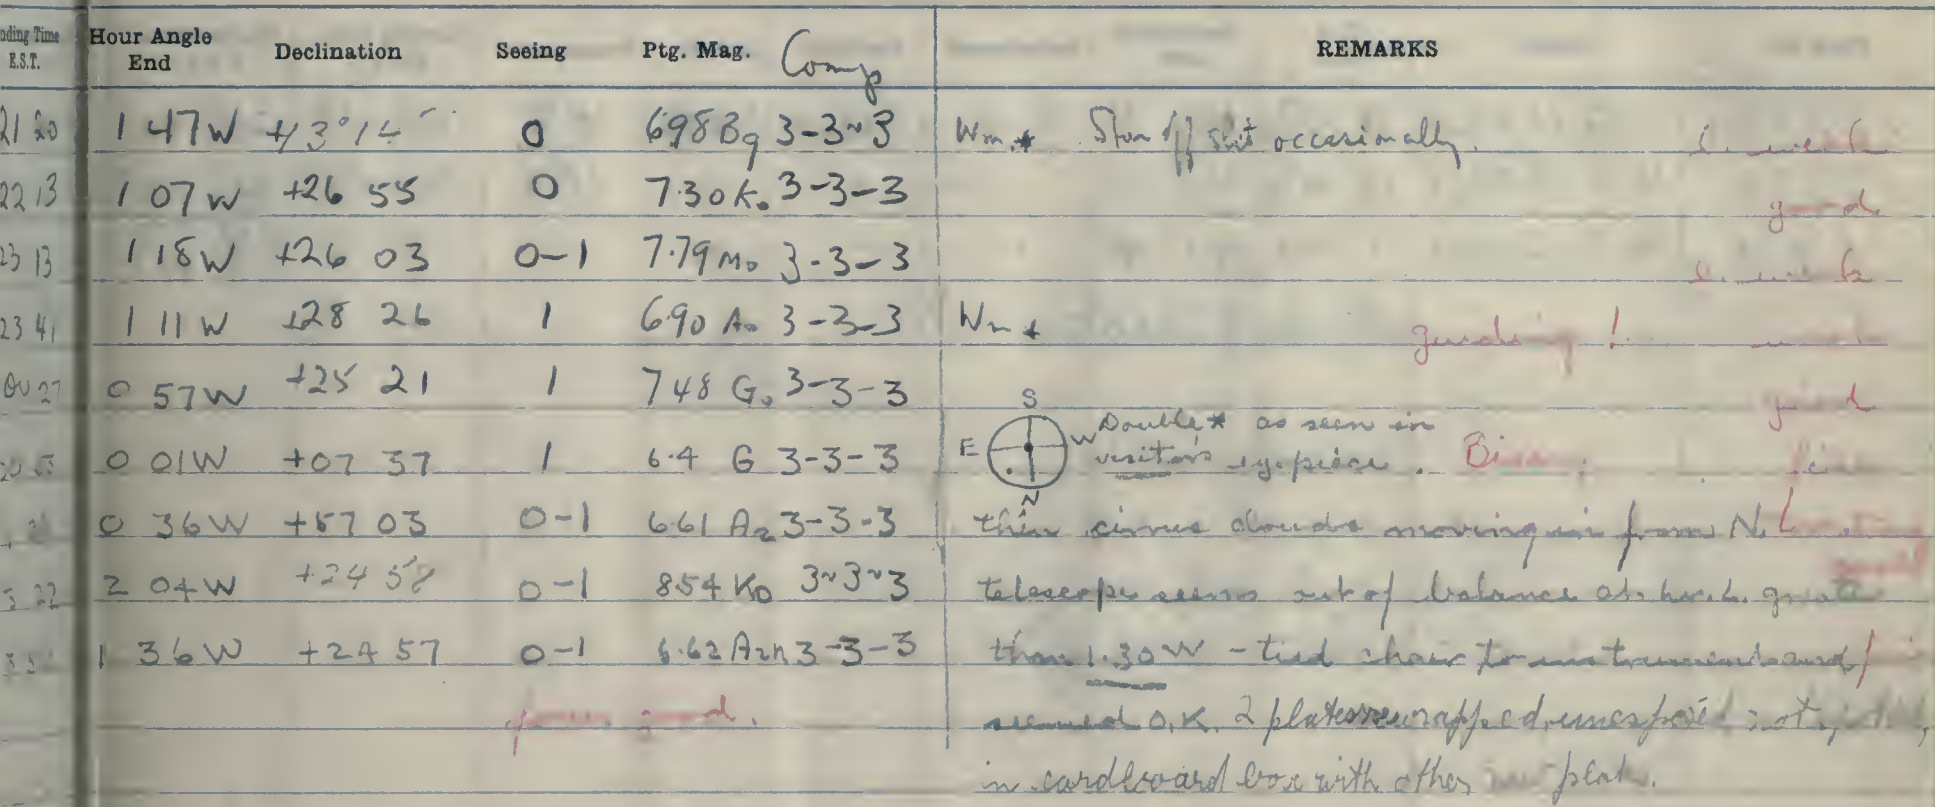 Ending Time Hour Angle Declination Seeing Ptg. Mag. Comp REMARKS
E.S.T. End
21 20 1 47W +13°14 0 6.98 B9 3-3-3 Wm.* Star off slit occasionally. c. weak
22 13 1 07W +26 55 0 7.30 K0 3-3-3 good
23 13 1 18W +26 03 0-1 7.79 M0 3-3-3 c. weak
23 41 1 11W +28 26 1 6.90 A0 3-3-3 Wm * guiding! weak
00 27 0 57W +25 21 1 7.48 G0 3-3-3 good
S
0 01W +07 37 1 6.4 G 3-3-3 E W Double* as seen in
visitors eyepiece.
N
0 36W +57 03 0-1 6.61 A2 3-3-3 thin cirrus clouds moving in from N.
22 2 04W +24 58 0-1 8.54 K0 3-3-3 telescope seems out of balance at h.a. greater
1 36W +24 57 0-1 6.62 A2n 3-3-3 than 1.30W - tied chair to instrument and
good. seemed O.K. 2 plates rewrapped, unexposed
in cardboard box with other plate.